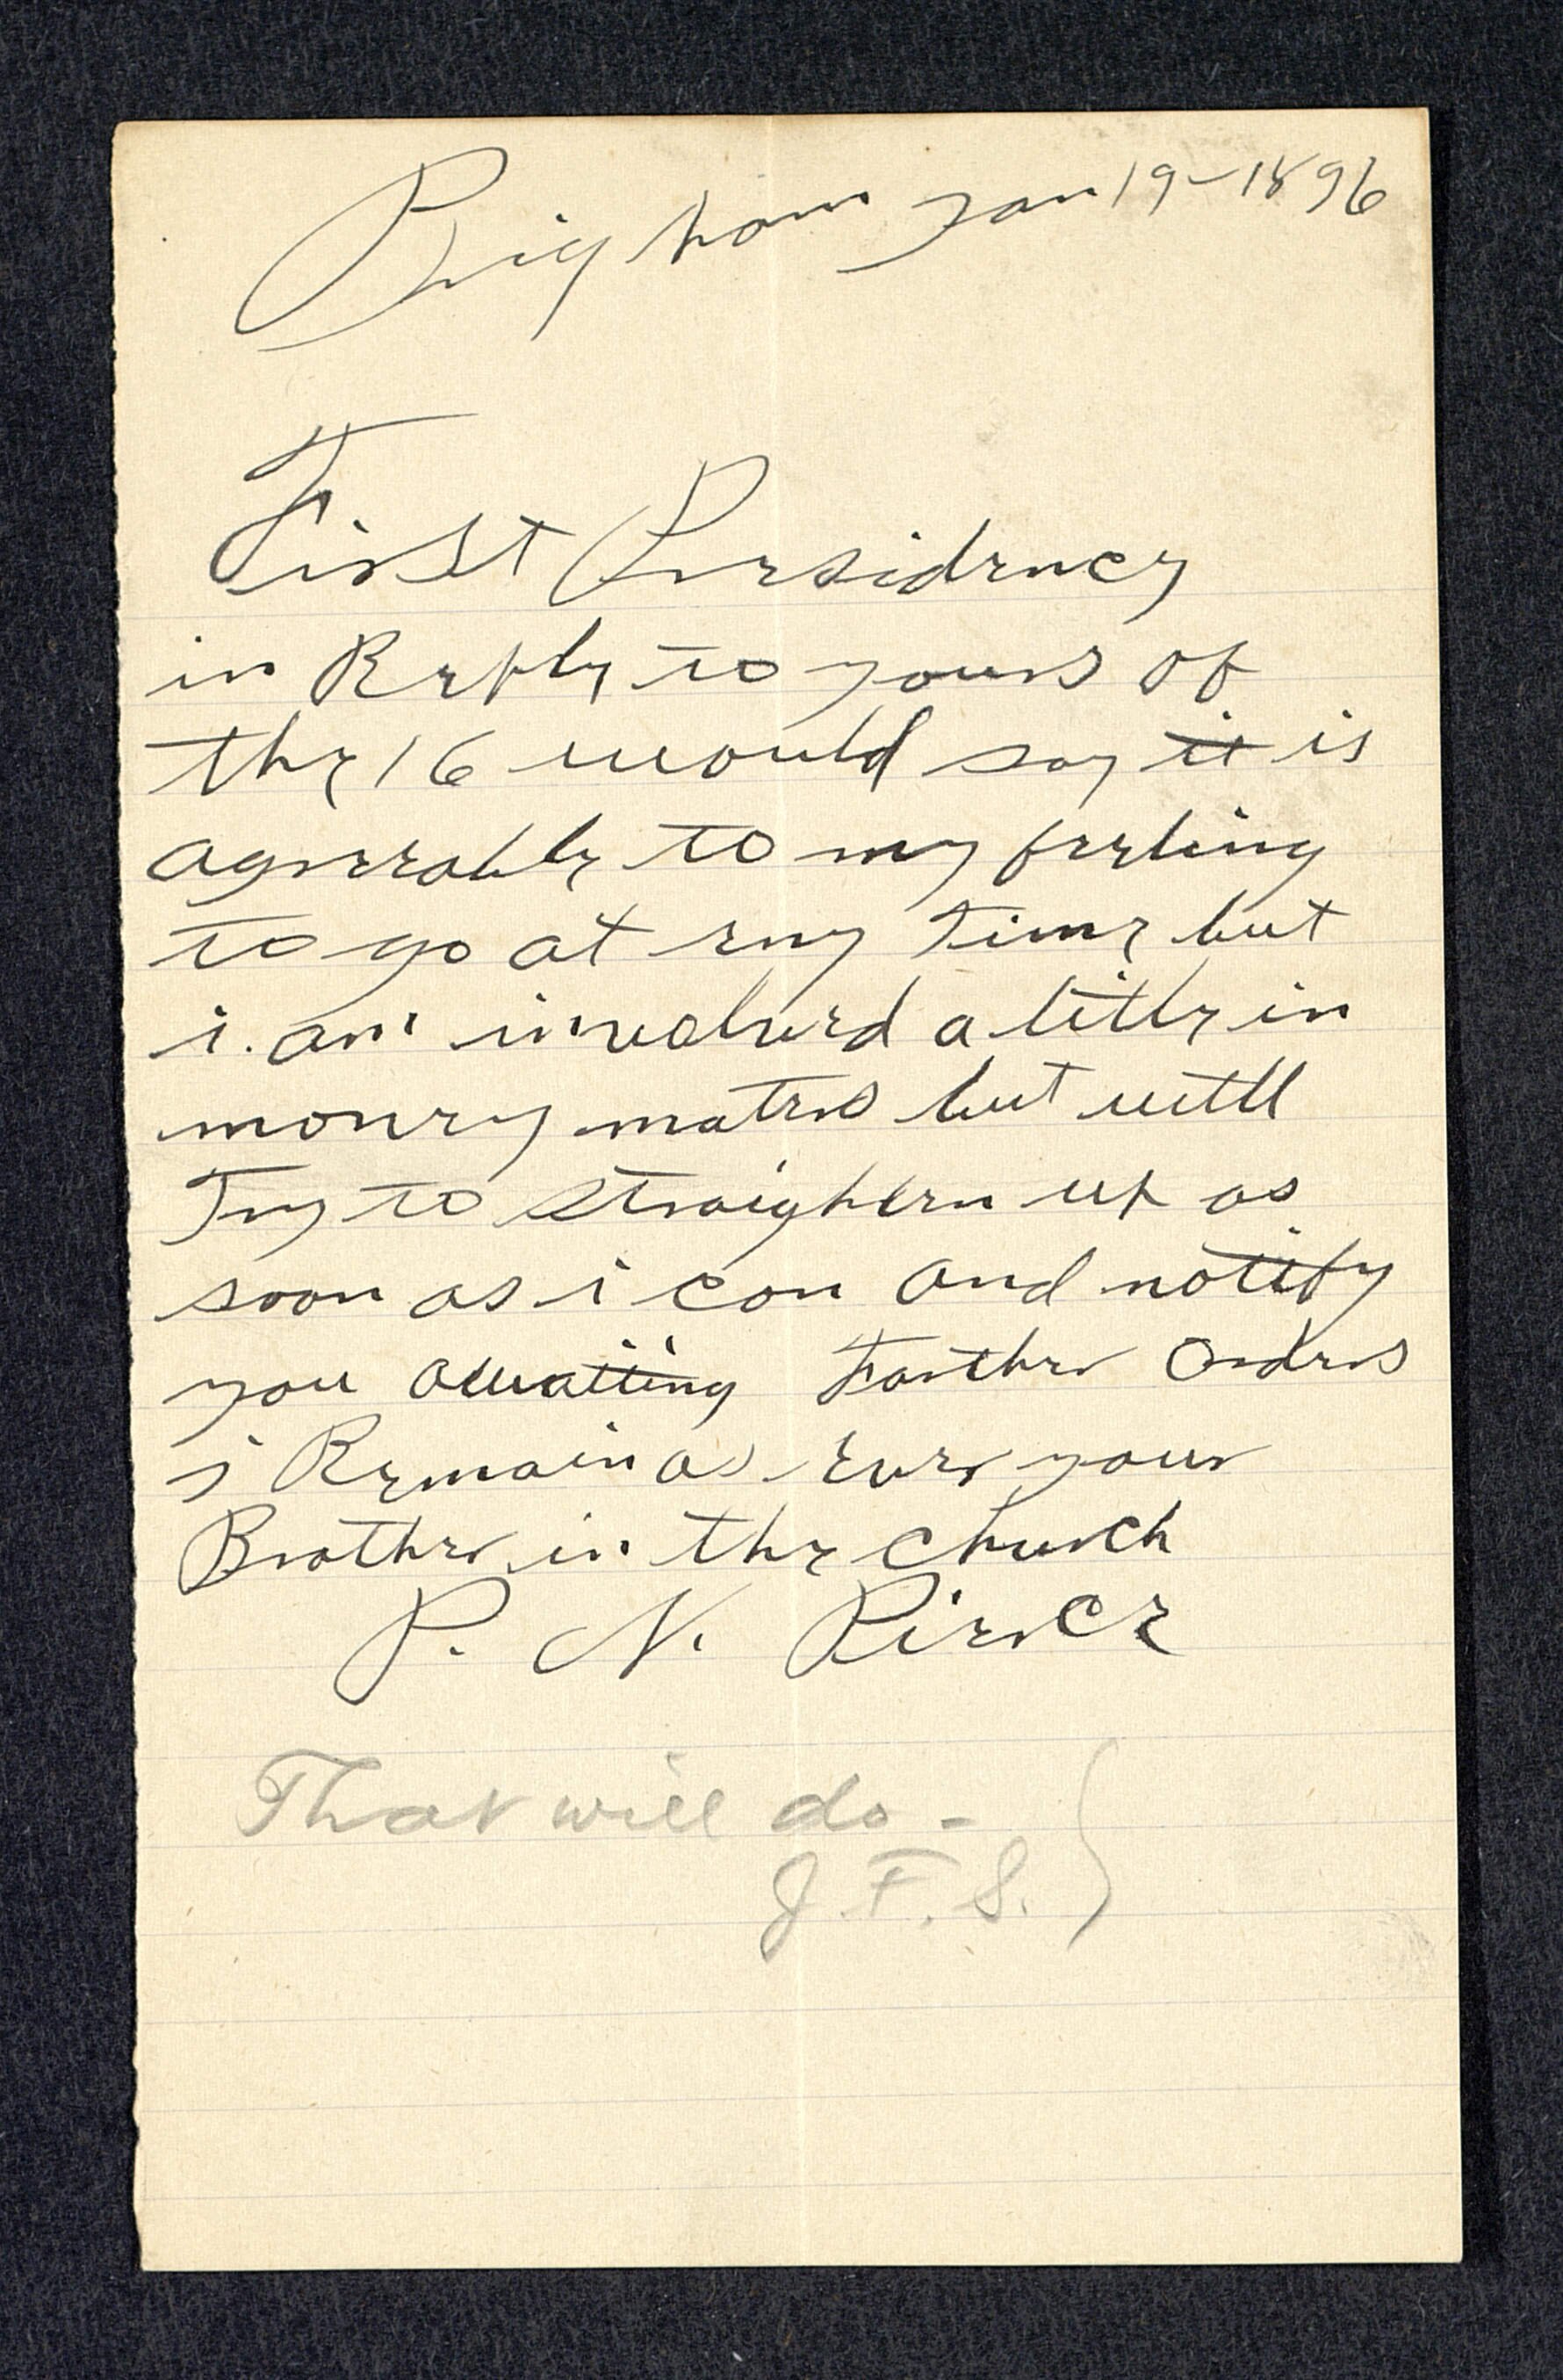 Brigham Jan 19-1896
First Presidency
in Reply to yours of
the 16 would say it is
agreeable to my feeling
to go at eny time but
i am involved a little in
money maters but will
Try to Straighten up as
soon as i can and notify
you awaiting Farther Orders
i Remain as ever your
Brother in the church
P. N. Pierce
That will do -
J. F. S. }